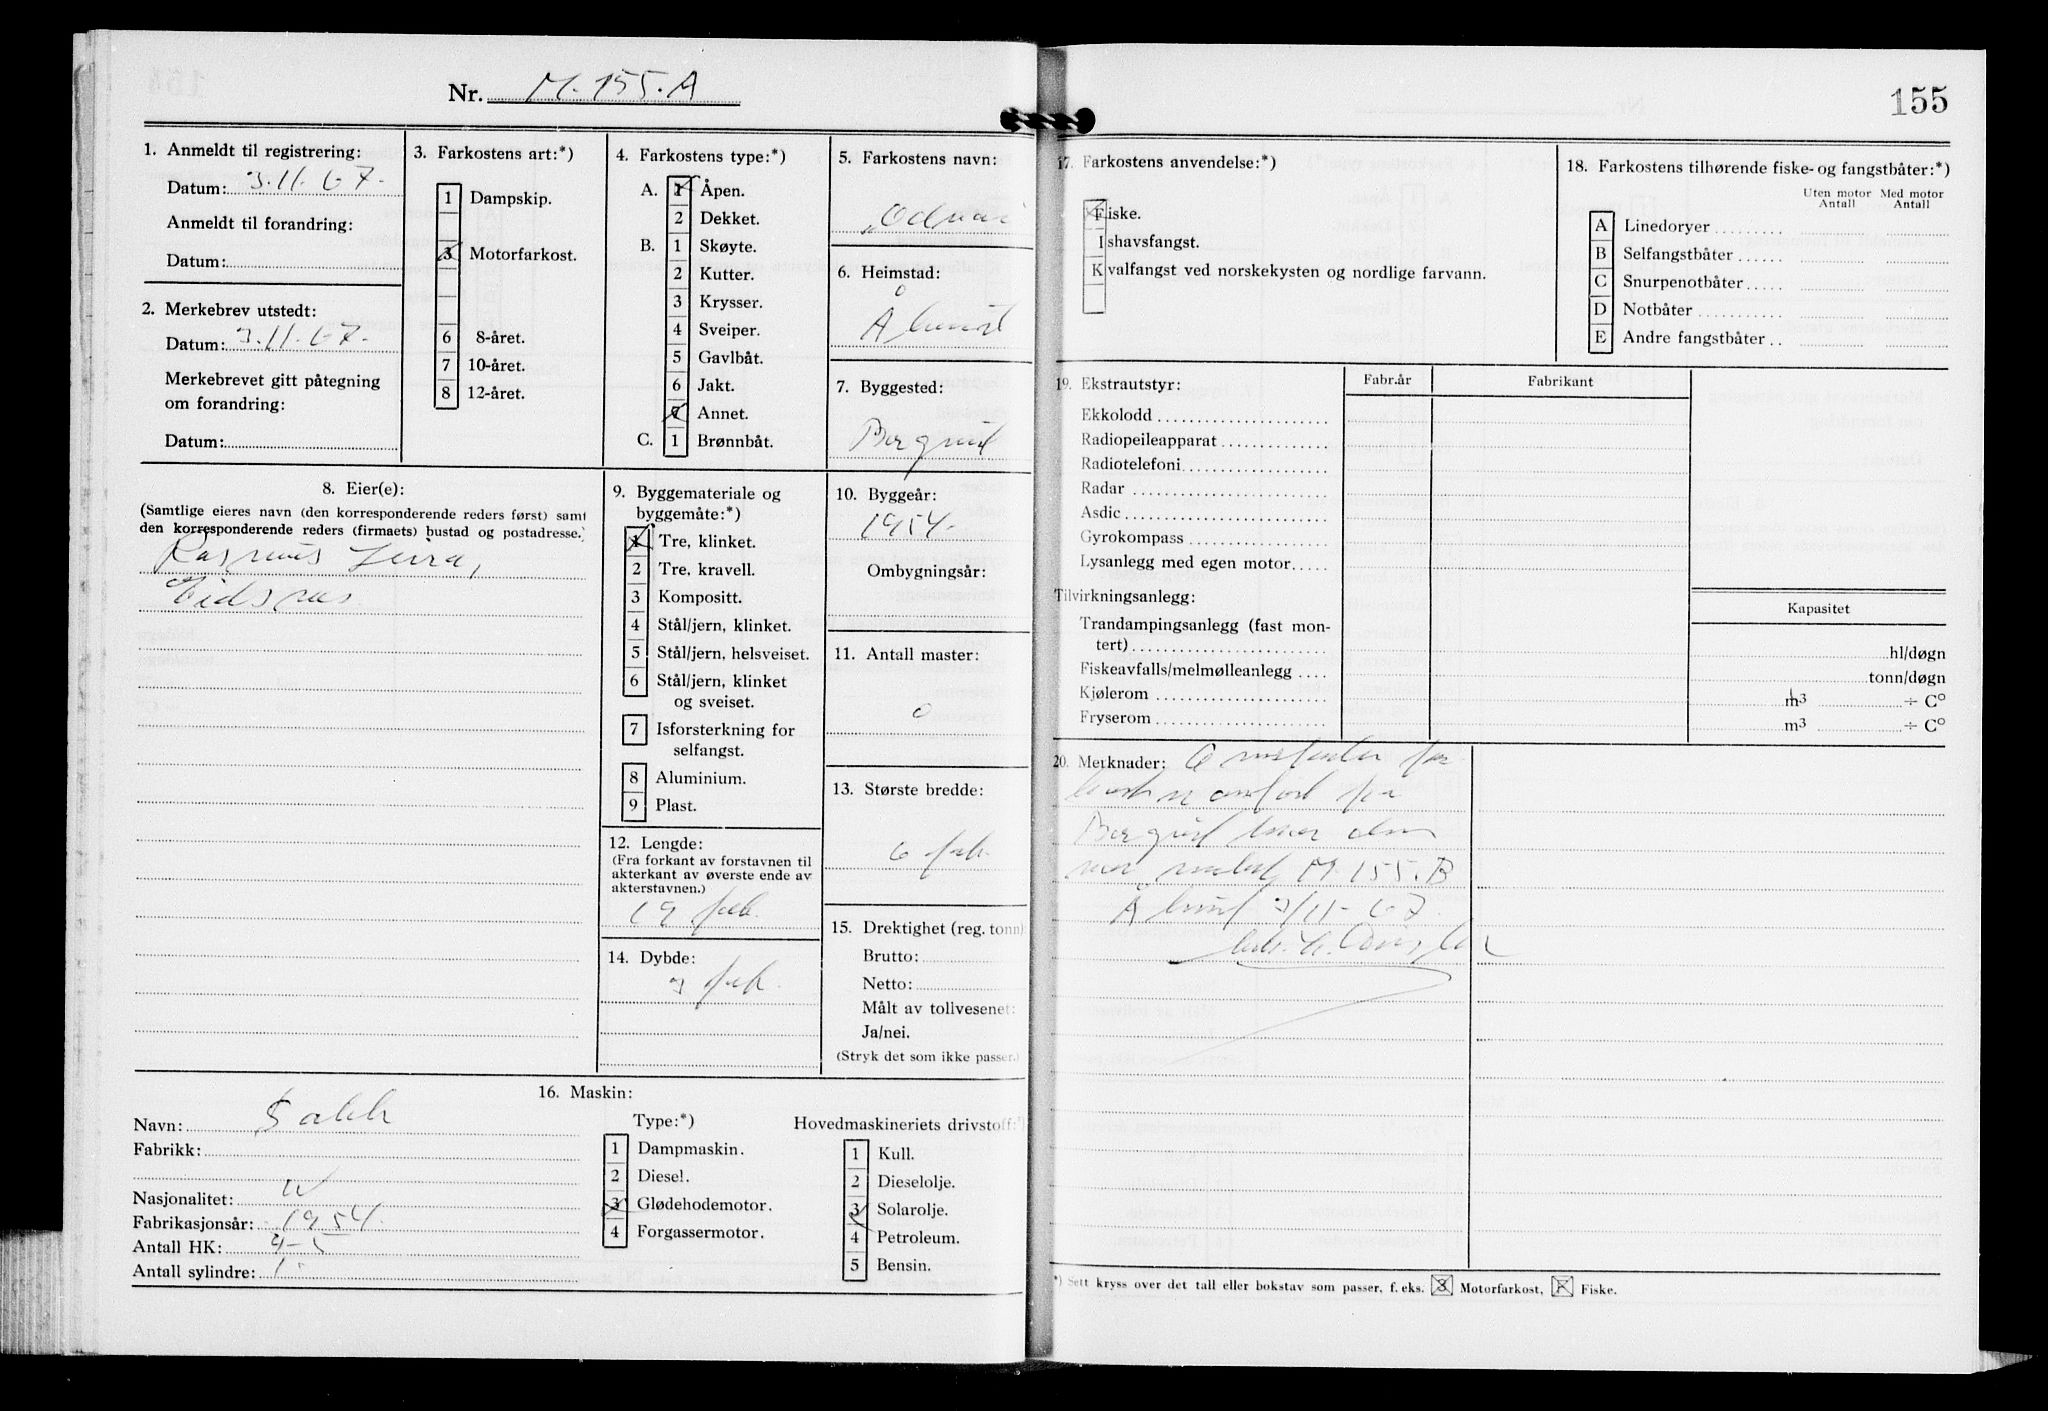 Nr. M. 155. A
1. Anmeldt til registrering:
Datum: 3.11.67.
Anmeldt til forandring:
Datum:
2. Merkebrev utstedt:
Datum: 3.11.67.
Merkebrevet gitt påtegning
om forandring:
Datum:
3. Farkostens art:*)
1 Dampskip.
3 Motorfarkost.
6 8-året.
7 10-året.
8 12-året.
4. Farkostens type:*)
A. 1 Åpen.
2 Dekket.
B. 1 Skøyte.
2 Kutter.
3 Krysser.
4 Sveiper.
5 Gavlbåt.
6 Jakt.
7 Annet.
C. 1 Brønnbåt.
5. Farkostens navn:
6. Heimstad:
Ålesund
7. Byggested:
Borgund
8. Eier(e):
(Samtlige eieres navn (den korresponderende reders først) samt
den korresponderende reders (firmaets) bustad og postadresse.)
Rasmus
Eidsnes
9. Byggemateriale og
byggemåte:*)
1 Tre, klinket.
2 Tre, kravell.
3 Kompositt.
4 Stål/jern, klinket.
5 Stål/jern, helsveiset.
6 Stål/jern, klinket
og sveiset.
7 Isforsterkning for
selfangst.
8 Aluminium.
9 Plast.
10. Byggeår:
1954.
Ombygningsår:
11. Antall master:
0
12. Lengde:
(Fra forkant av forstavnen til
akterkant av øverste ende av
akterstavnen.)
19 fot.
13. Største bredde:
6 fot.
14. Dybde:
3 fot.
15. Drektighet (reg. tonn)
Brutto:
Netto:
Målt av tollvesenet:
Ja/nei.
(Stryk det som ikke passer.)
16. Maskin:
Navn: Sabb
Fabrikk:
Nasjonalitet: N
Fabrikasjonsår: 1954.
Antall HK: 4-5
Antall sylindre: 1.
Type:*)
1 Dampmaskin.
2 Diesel.
3 Glødehodemotor.
4 Forgassermotor.
Hovedmaskineriets drivstoff:*)
1 Kull.
2 Dieselolje.
3 Solarolje.
4 Petroleum.
5 Bensin.
155
17. Farkostens anvendelse:*)
Fiske.
Ishavsfangst.
Kvalfangst ved norskekysten og nordlige farvann.
18. Farkostens tilhørende fiske- og fangstbåter:*)
Uten motor Med motor
Antall Antall
A Linedoryer
B Selfangstbåter
C Snurpenotbåter
D Notbåter
E Andre fangstbåter
19. Ekstrautstyr:
Fabr.år Fabrikant
Ekkolodd
Radiopeileapparat
Radiotelefoni
Radar
Asdic
Gyrokompass
Lysanlegg med egen motor
Tilvirkningsanlegg:
Kapasitet
Trandampingsanlegg (fast mon-
tert) hl/døgn
Fiskeavfalls/melmølleanlegg tonn/døgn
Kjølerom m³ ÷ C°
Fryserom m³ ÷ C°
20. Merknader: Omskrevet
Borgund
M. 155. B
Ålesund 3/11-67.
*) Sett kryss over det tall eller bokstav som passer, f.eks. 3 Motorfarkost, F Fiske.